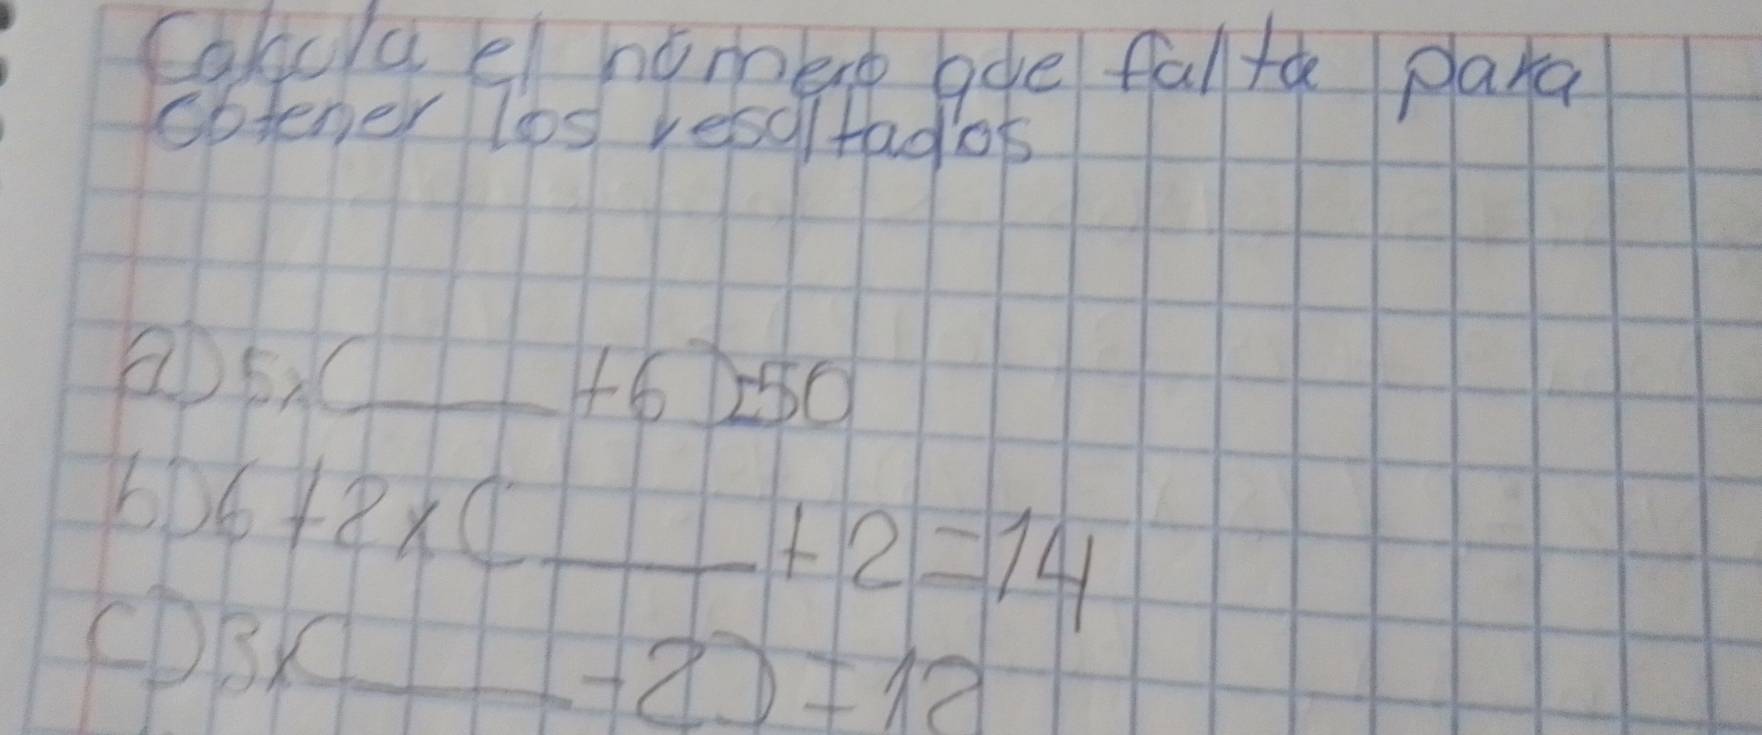 Calcula el número que falta para
obtener los resultados
a) 5x(____+6)=50
b) 6+2x(____+2=14
c) 3x(____-2)=12